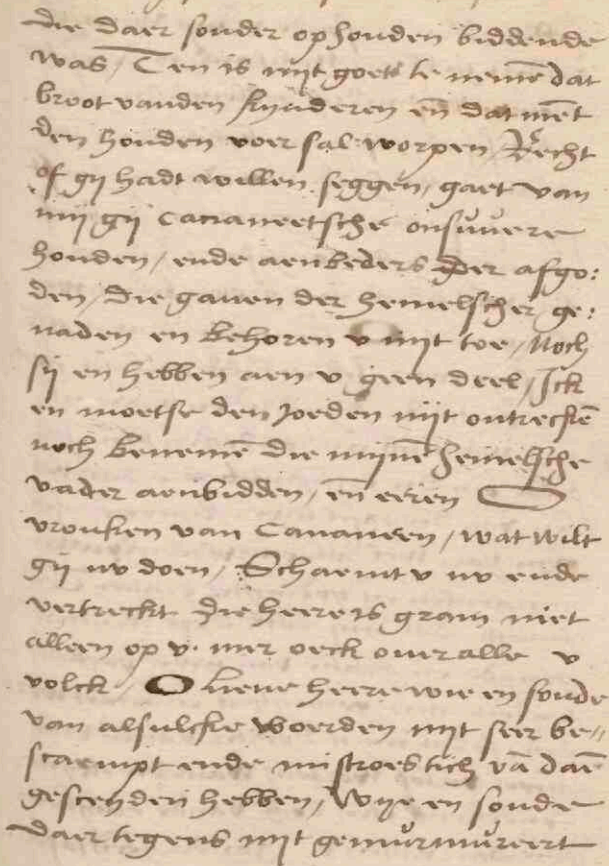 die daer sonder ophouden biddende
was / Ten is nijt goet te nemē dat
broot vanden kynderen eñ dat mēt
den honden voer sal worpen / Recht
of gij hadt willen seggen / gaet van
mij gij Cacraneetsche onsuuere
honden / ende aenbeders der afgo:
den / die gauen der hemelscher ge:
naden en behoren v nijt toe / noch
sij en hebben aen v geen deel / Ick
en moetse den Joeden nijt ontreckē
noch benemē die mijnē hemelsche
vader aenbidden / eñ eeren O
vrouken van Cananeen / wat wilt
gij nv doen / Schaemt v nv ende
vertreckt die heere is gram niet
alleen op v. mer oeck ouer alle v
volck / O lieue heere wie en soude
van alsulcke woerden nijt seer be//
scaempt ende mistroestich vā daē
gesceyden hebben / Wye en soude
daer tegens nijt gemurmureert